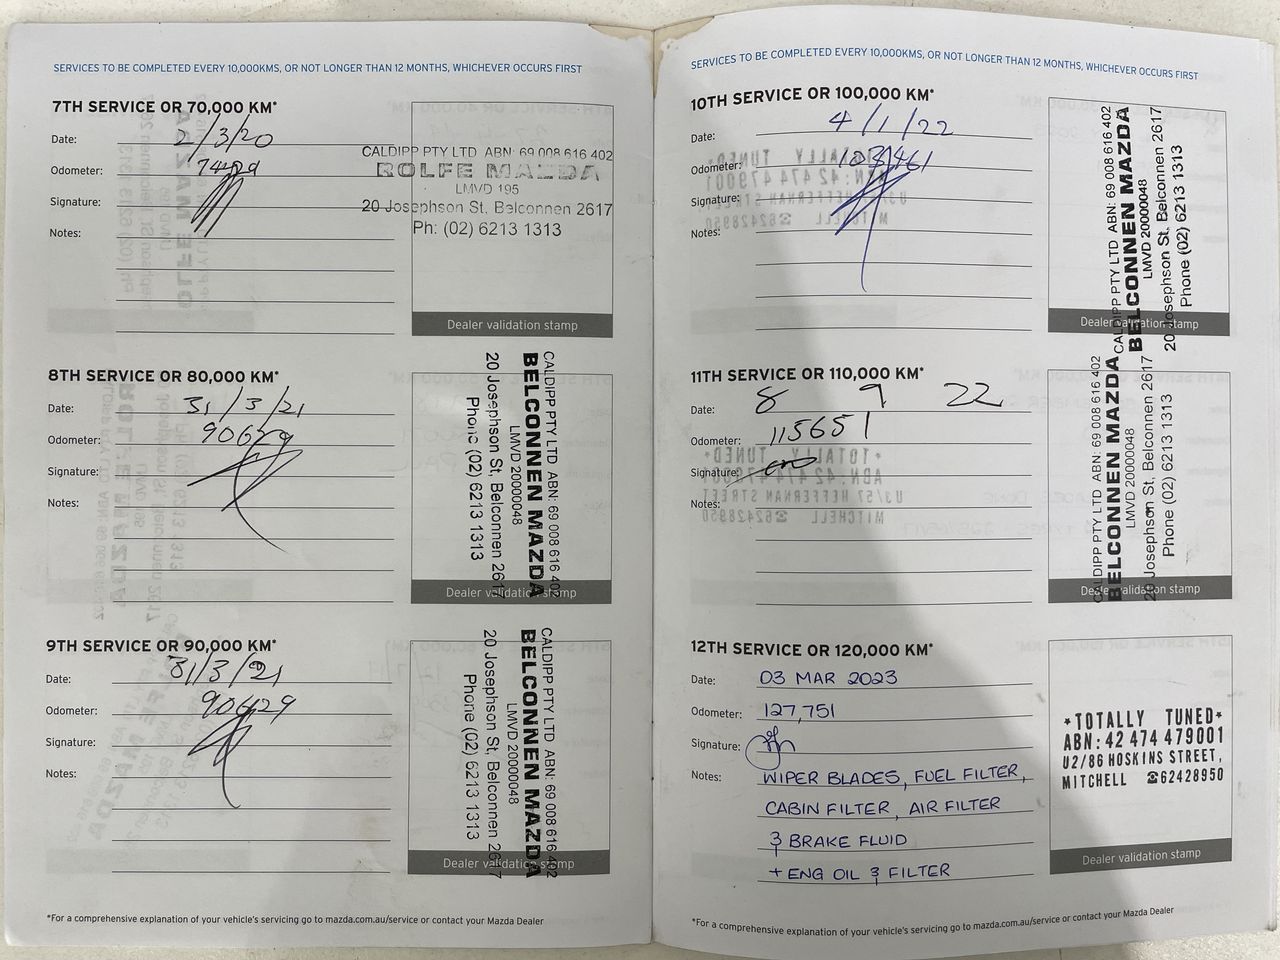 SERVICES TO BE COMPLETED EVERY 10,000KMS, OR NOT LONGER THAN 12 MONTHS, WHICHEVER OCCURS FIRST
7TH SERVICE OR 70,000 KM*
Date: 2/3/20
Odometer:
Signature:
Notes:
CALDIPP PTY LTD ABN: 69 008 616 402
ROLFE MAZDA
LMVD 195
20 Josephson St, Belconnen 2617
Ph: (02) 6213 1313
Dealer validation stamp
8TH SERVICE OR 80,000 KM*
Date: 31/3/21
Odometer:
Signature:
Notes:
CALDIPP PTY LTD ABN: 69 008 616 402
BELCONNEN MAZDA
LMVD 20000048
20 Josephson St, Belconnen 2617
Phone (02) 6213 1313
Dealer validation stamp
9TH SERVICE OR 90,000 KM*
Date: 31/3/21
Odometer: 90629
Signature:
Notes:
CALDIPP PTY LTD ABN: 69 008 616 402
BELCONNEN MAZDA
LMVD 20000048
20 Josephson St, Belconnen 2617
Phone (02) 6213 1313
Dealer validation stamp
*For a comprehensive explanation of your vehicle's servicing go to mazda.com.au/service or contact your Mazda Dealer
SERVICES TO BE COMPLETED EVERY 10,000KMS, OR NOT LONGER THAN 12 MONTHS, WHICHEVER OCCURS FIRST
10TH SERVICE OR 100,000 KM*
Date: 4/1/22
Odometer: 103461
Signature:
Notes:
CALDIPP PTY LTD ABN: 69 008 616 402
BELCONNEN MAZDA
LMVD 20000048
20 Josephson St, Belconnen 2617
Phone (02) 6213 1313
Dealer validation stamp
11TH SERVICE OR 110,000 KM*
Date: 8 9 22
Odometer: 115651
Signature:
Notes:
CALDIPP PTY LTD ABN: 69 008 616 402
BELCONNEN MAZDA
LMVD 20000048
20 Josephson St, Belconnen 2617
Phone (02) 6213 1313
Dealer validation stamp
12TH SERVICE OR 120,000 KM*
Date: 03 MAR 2023
Odometer: 127,751
Signature:
Notes: WIPER BLADES, FUEL FILTER,
CABIN FILTER, AIR FILTER
& BRAKE FLUID
+ ENG OIL & FILTER
*TOTALLY TUNED*
ABN: 42 474 479001
U2/86 HOSKINS STREET,
MITCHELL ☎62428950
Dealer validation stamp
*For a comprehensive explanation of your vehicle's servicing go to mazda.com.au/service or contact your Mazda Dealer